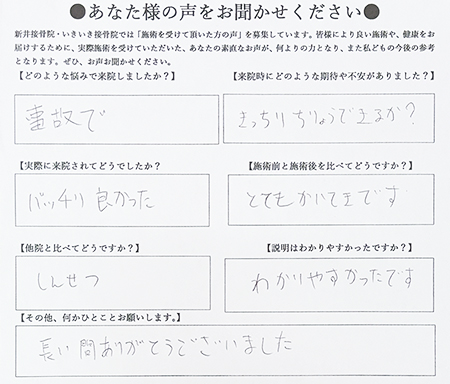 ●あなた様の声をお聞かせください●
新井接骨院・いきいき接骨院では「施術を受けて頂いた方の声」を募集しています。皆様により良い施術や、健康をお
届けするために、実際施術を受けていただいた、あなたの素直なお声が、何よりの力となり、また私どもの今後の参考
となります。ぜひ、お声お聞かせください。
【どのような悩みで来院しましたか？】
【来院時にどのような期待や不安がありました？】
事故で
きっちりちりょうできるか?
【実際に来院されてどうでしたか？
【施術前と施術後を比べてどうですか？】
バッチリ良かった
とてもかいてきです
【他院と比べてどうですか？】
【説明はわかりやすかったですか？】
しんせつ
わかりやすかったです
【その他、何かひとことお願いします。】
長い間ありがとうございました